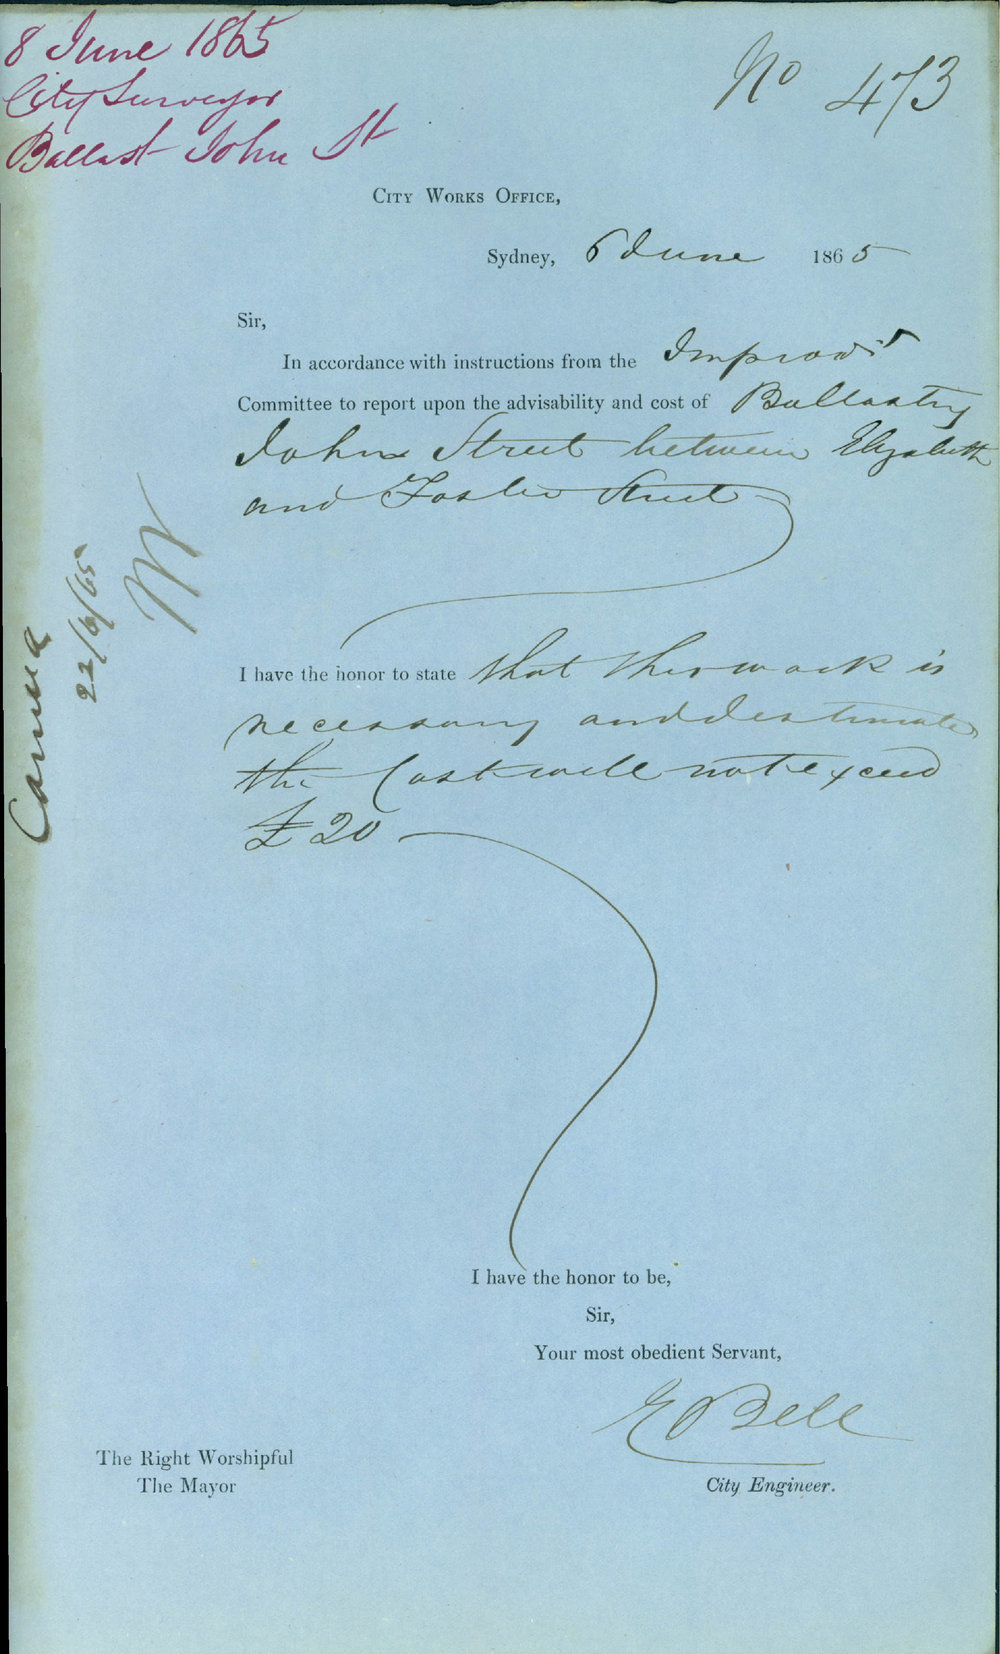 8 June 1865
City Surveyor
Ballast John St
No 473
CITY WORKS OFFICE,
Sydney, 6 June 1865
Sir,
In accordance with instructions from the Improvt
Committee to report upon the advisability and cost of Ballasting
John Street between Elizabeth
and Foster Street
I have the honor to state that this work is
necessary and I estimate
the Cost will not exceed
£20
I have the honor to be,
Sir,
Your most obedient Servant,
E Bell
City Engineer.
The Right Worshipful
The Mayor
22/6/65